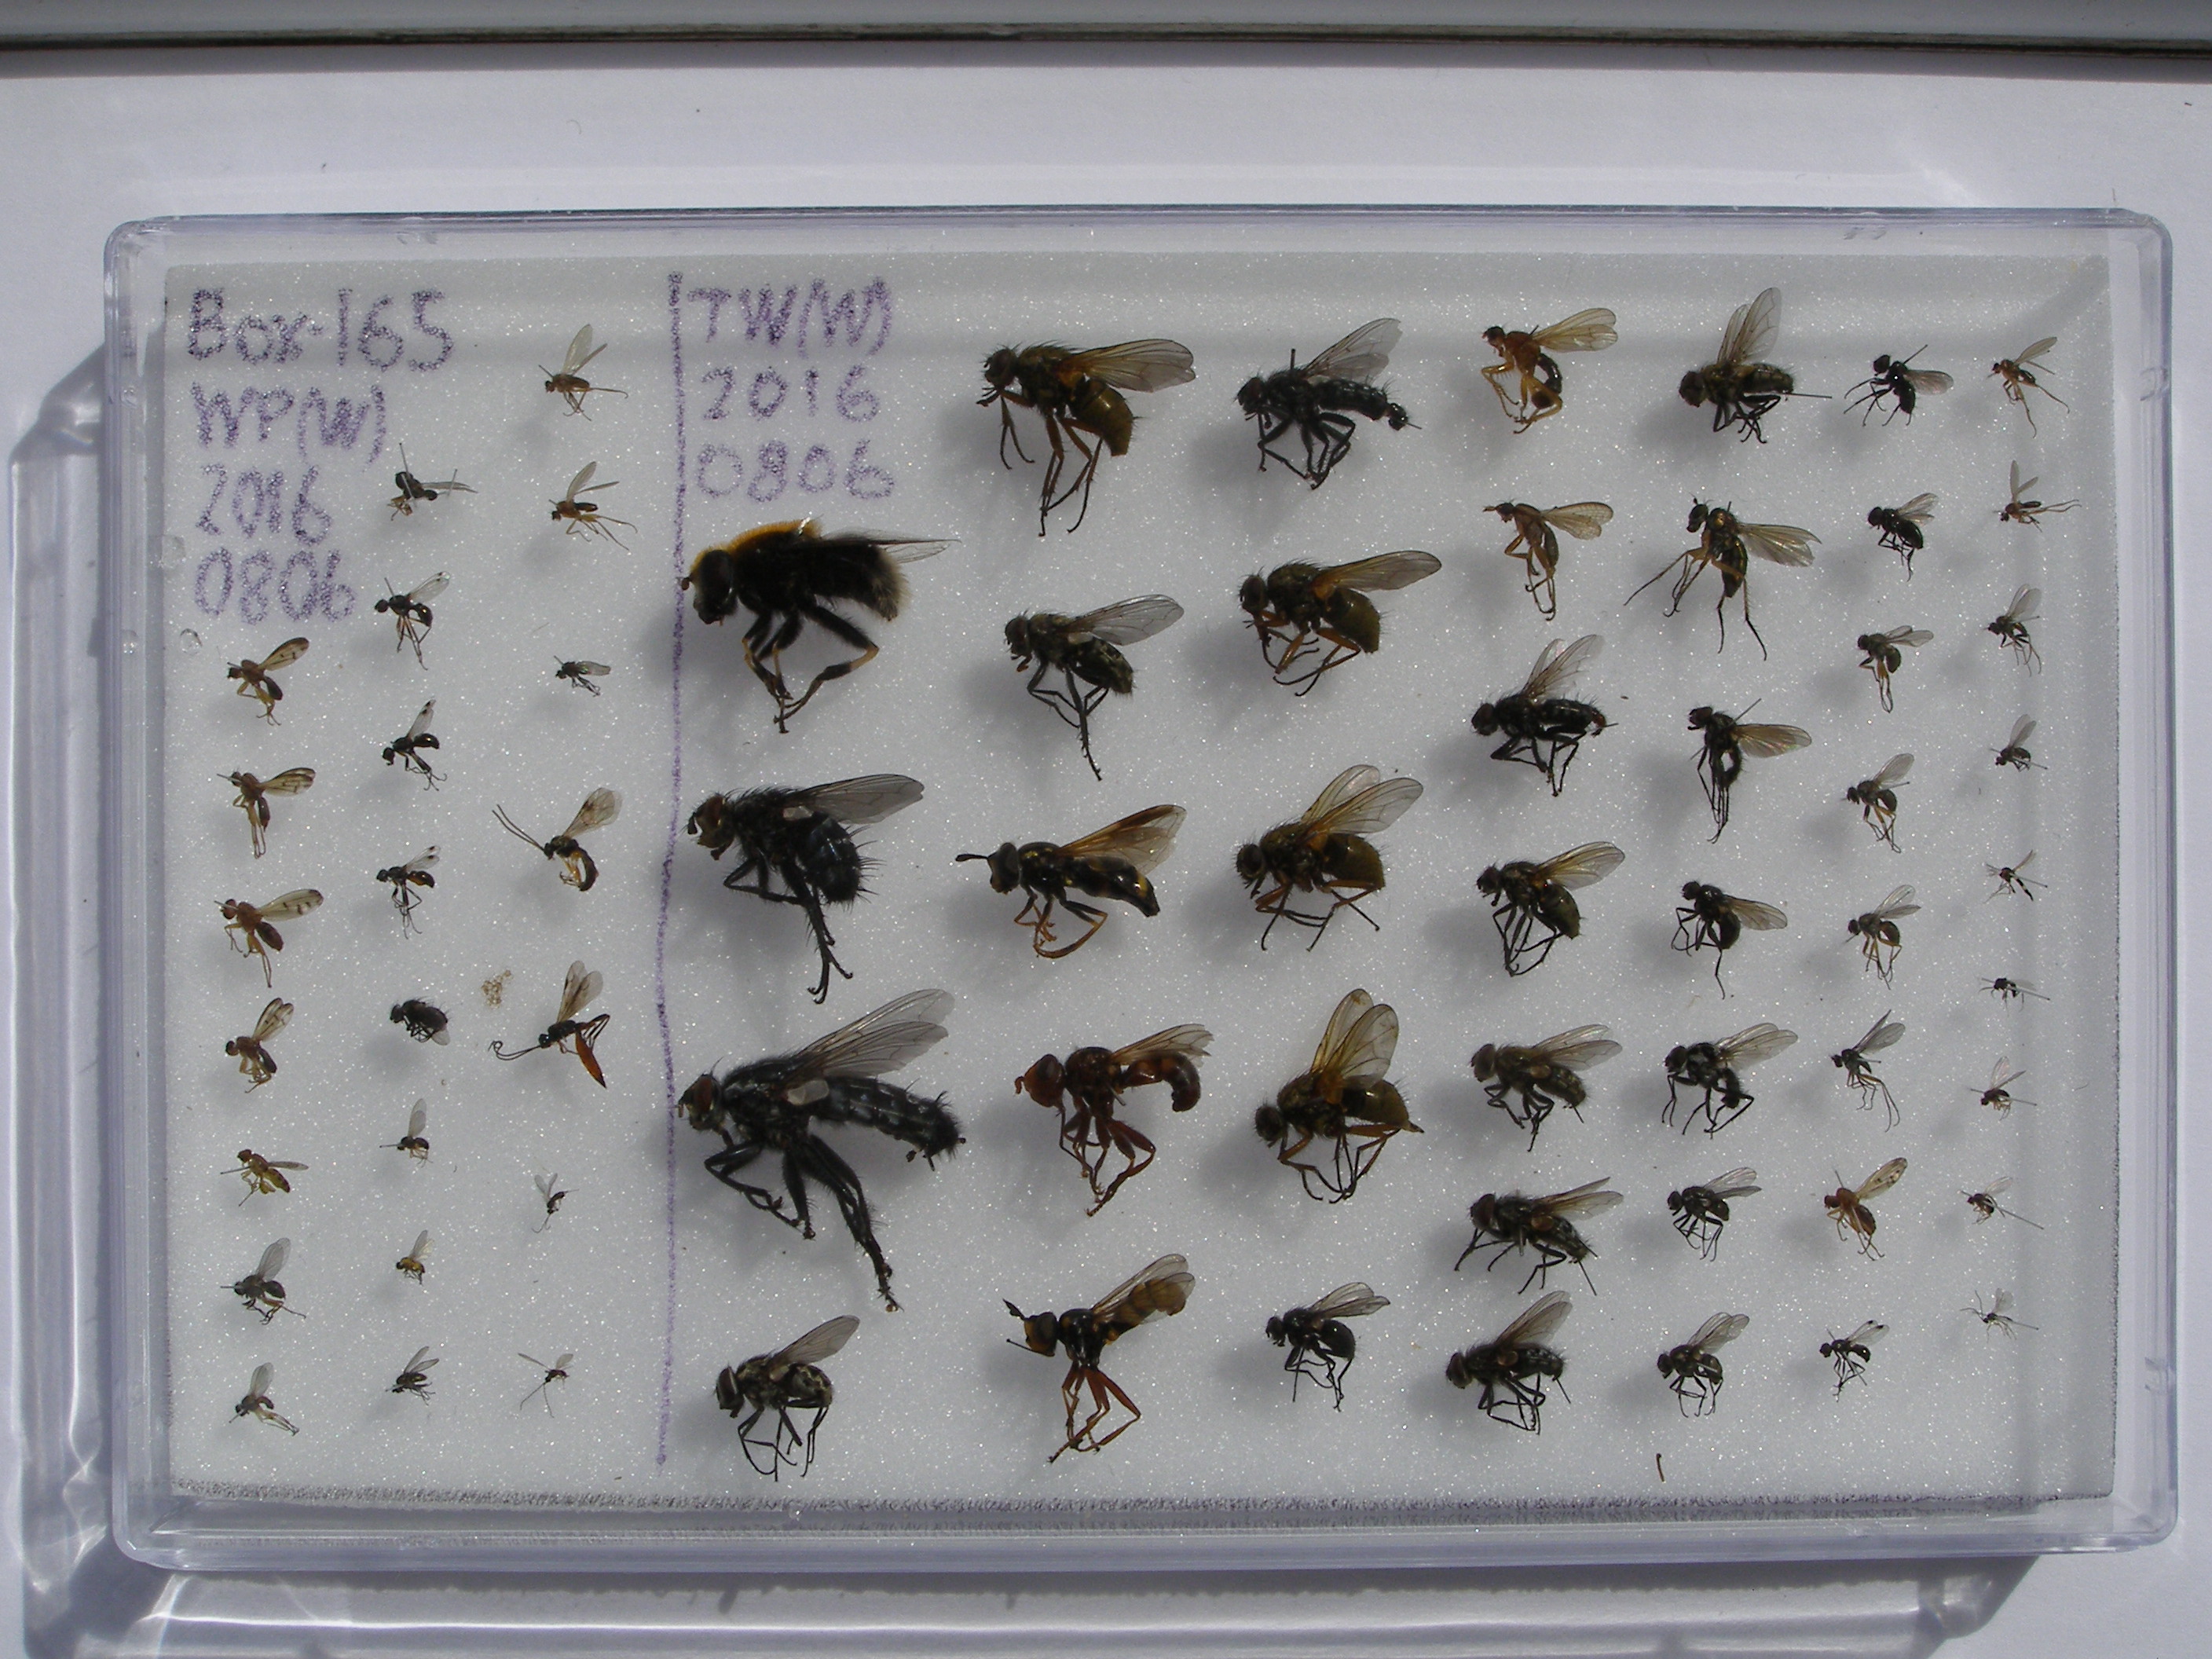 Box-165
WP(W)
2016
0806
TW(W)
2016
0806